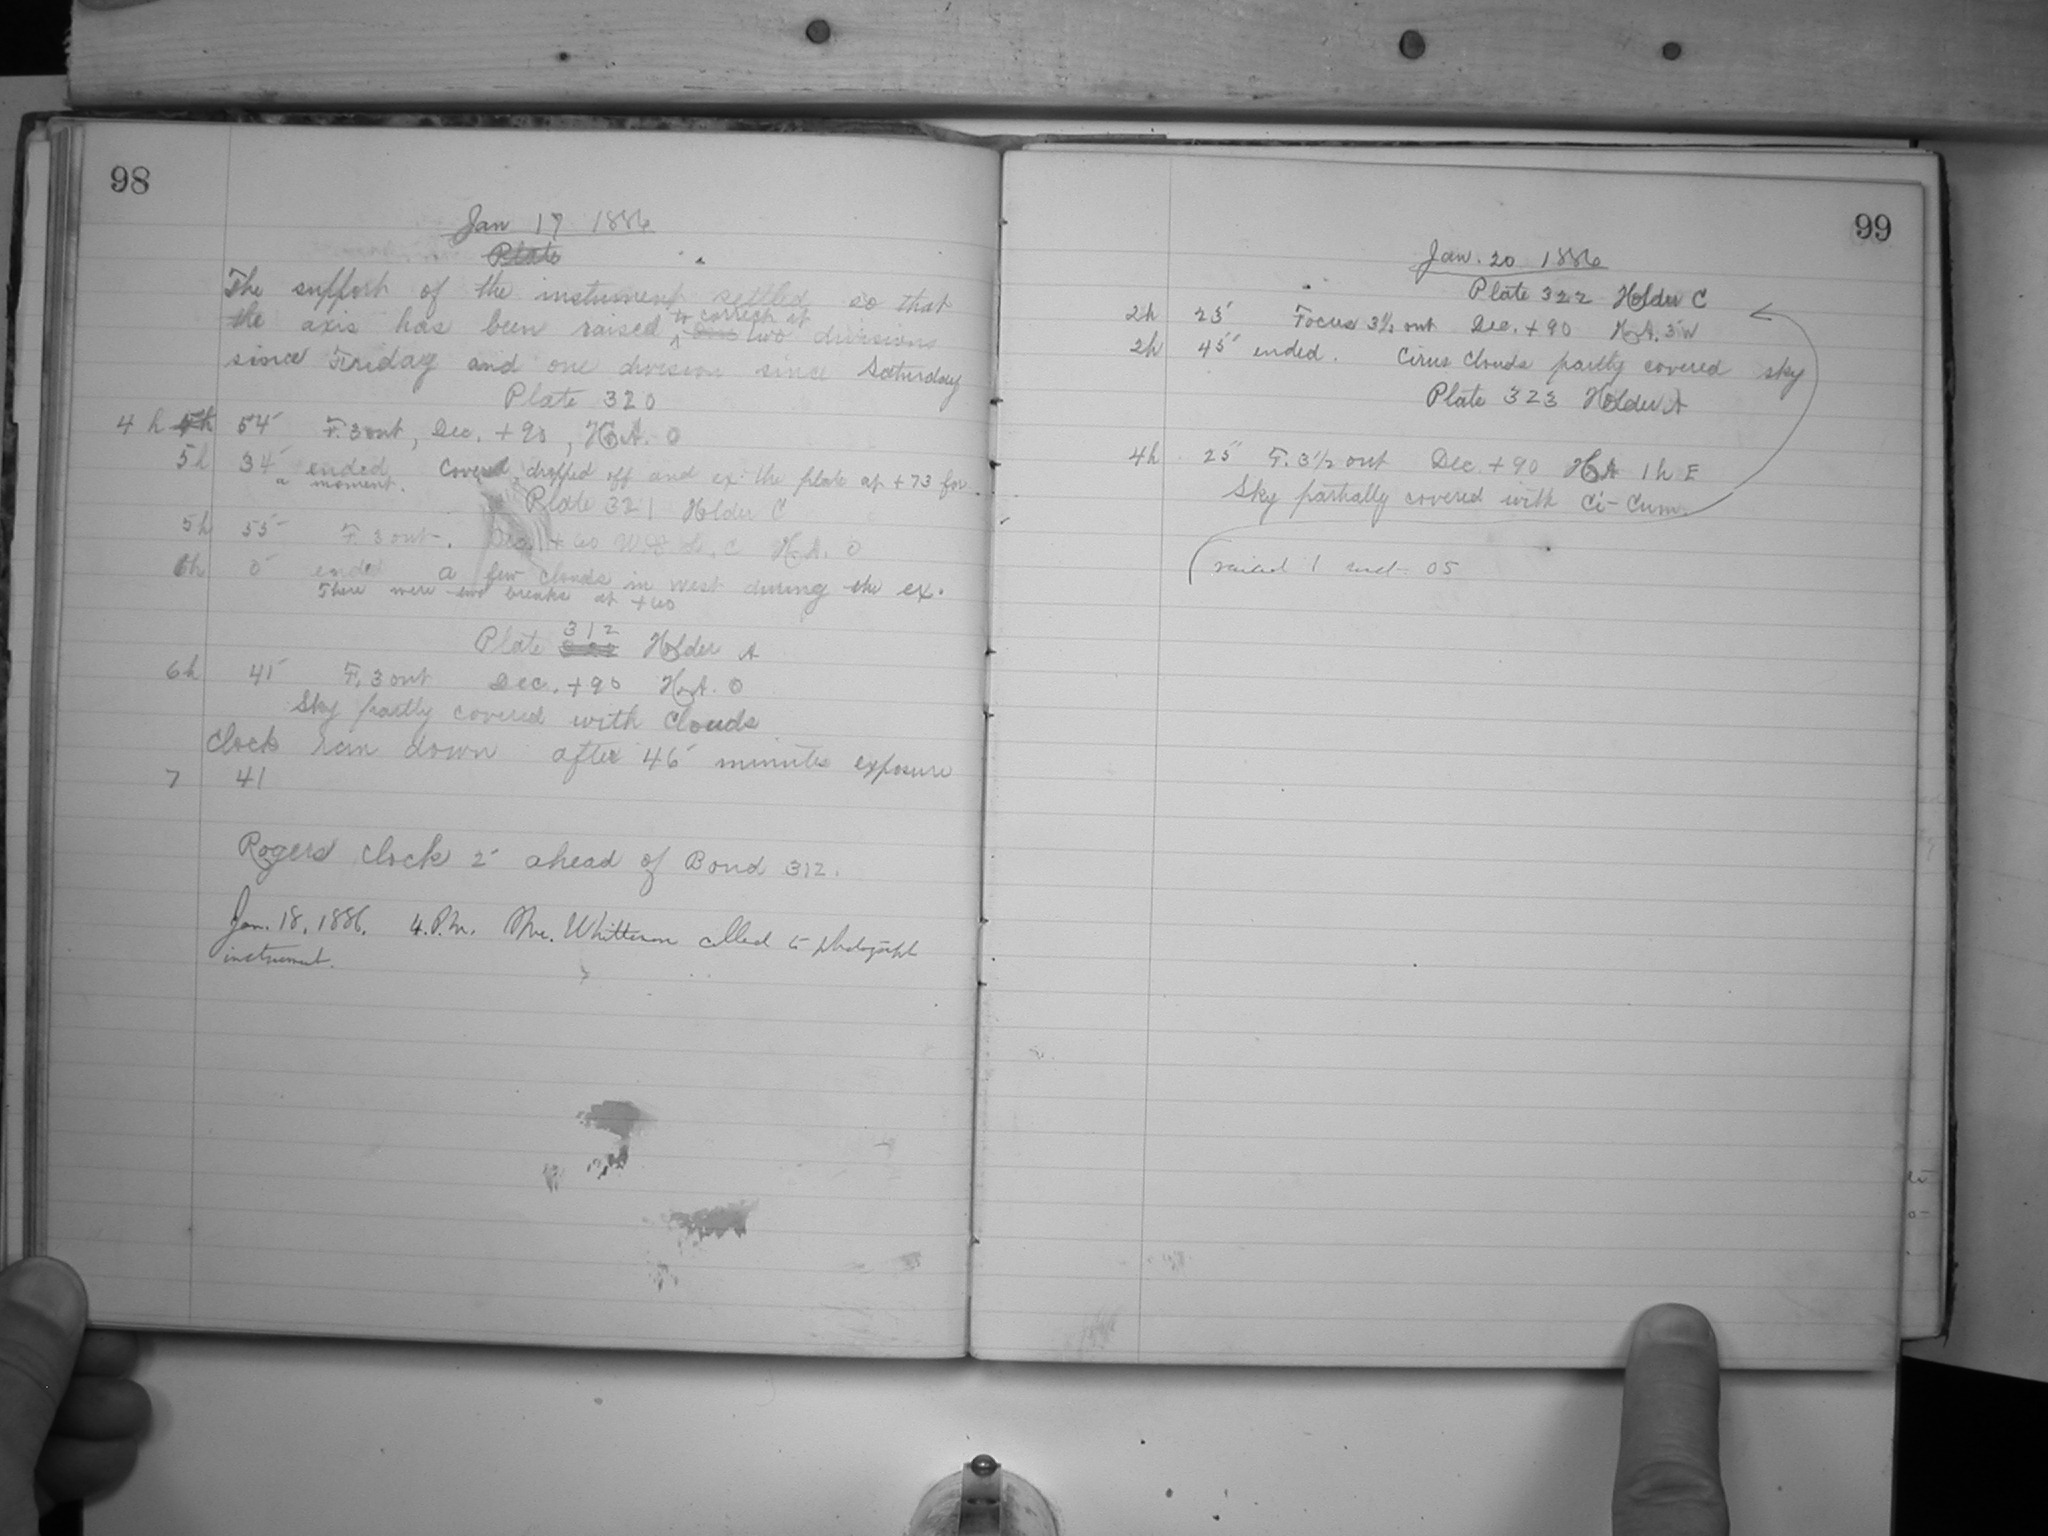 98
Jan 17 1886
Plate
The support of the instrument settled so that
the axis has been raised to correct it two divisions
since Friday and one division since Saturday
Plate 320
4h 5h 54 F. 3 out, Dec. +90, H.A. 0
5h 34 ended Covered dropped off and ex. the plate at +73 for
a moment.
Plate 321 Holder C
5h 55 F. 3 out. Dec. +60 H.A. 0
6h 0 ended a few clouds in west during the ex.
There were two breaks at +60
Plate 312 Holder A
6h 41 F. 3 out Dec. +90 H.A. 0
Sky partly covered with clouds
Clock run down after 46 minutes exposure
7 41
Rogers clock 2 ahead of Bond 312.
Jan. 18, 1886. 4. P.M. Mr. called to photograph
instrument.
99
Jan. 20 1886
Plate 322 Holder C
2h 25 Focus 3½ out Dec. +90 H.A. 3 W
2h 45 ended. Cirus Clouds partly covered sky
Plate 323 Holder A
4h 25 F. 3½ out Dec. +90 H.A 1h E
Sky partially covered with Ci-Cum.
raised 1 05